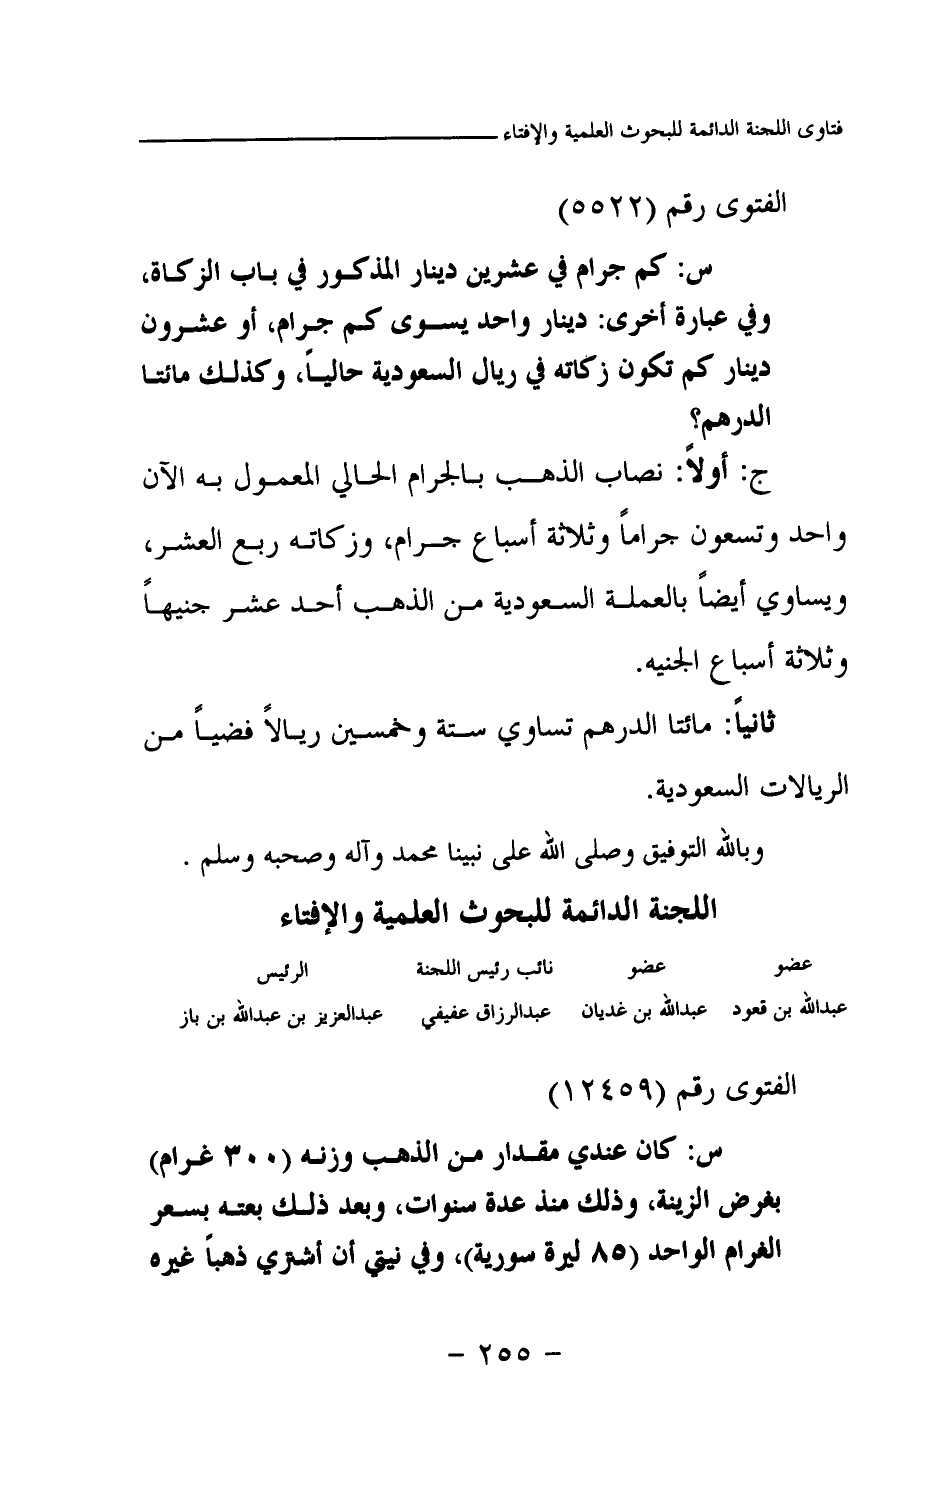 فتاوى اللجنة الدائمة للبحوث العلمية والإفتاء
الفتوى رقم (٥٥٢٢)
س: كم جرام في عشرين دينار المذكور في باب الزكاة،
وفي عبارة أخرى: دينار واحد يسوى كم جرام، أو عشرون
دينار كم تكون زكاته في ريال السعودية حالياً، وكذلك مائتا
الدرهم؟
ج: أولاً: نصاب الذهب بالجرام الحالي المعمول به الآن
واحد وتسعون جراماً وثلاثة أسباع جرام، وزكاته ربع العشر،
ويساوي أيضاً بالعملة السعودية من الذهب أحد عشر جنيهاً
وثلاثة أسباع الجنيه.
ثانياً: مائتا الدرهم تساوي ستة وخمسين ريالاً فضياً من
الريالات السعودية.
وبالله التوفيق وصلى الله على نبينا محمد وآله وصحبه وسلم .
اللجنة الدائمة للبحوث العلمية والإفتاء
عضو عضو نائب رئيس اللجنة الرئيس
عبدالله بن قعود عبدالله بن غديان عبدالرزاق عفيفي عبدالعزيز بن عبدالله بن باز
الفتوى رقم (١٢٤٥٩)
س: كان عندي مقدار من الذهب وزنه (٣٠٠ غرام)
بغرض الزينة، وذلك منذ عدة سنوات، وبعد ذلك بعته بسعر
الغرام الواحد (٨٥ ليرة سورية)، وفي نيتي أن أشتري ذهباً غيره
- ٢٥٥ -